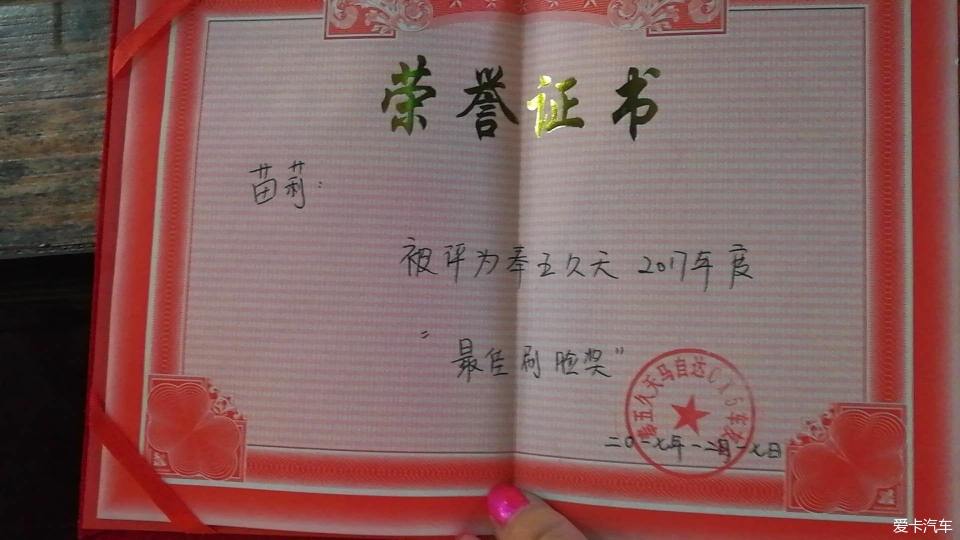 荣誉证书
苗莉：
被评为奉五久天 2017年度
“最佳刷脸奖”
奉五久天马自达CX5车友
二〇一七年一二月一七日
爱卡汽车